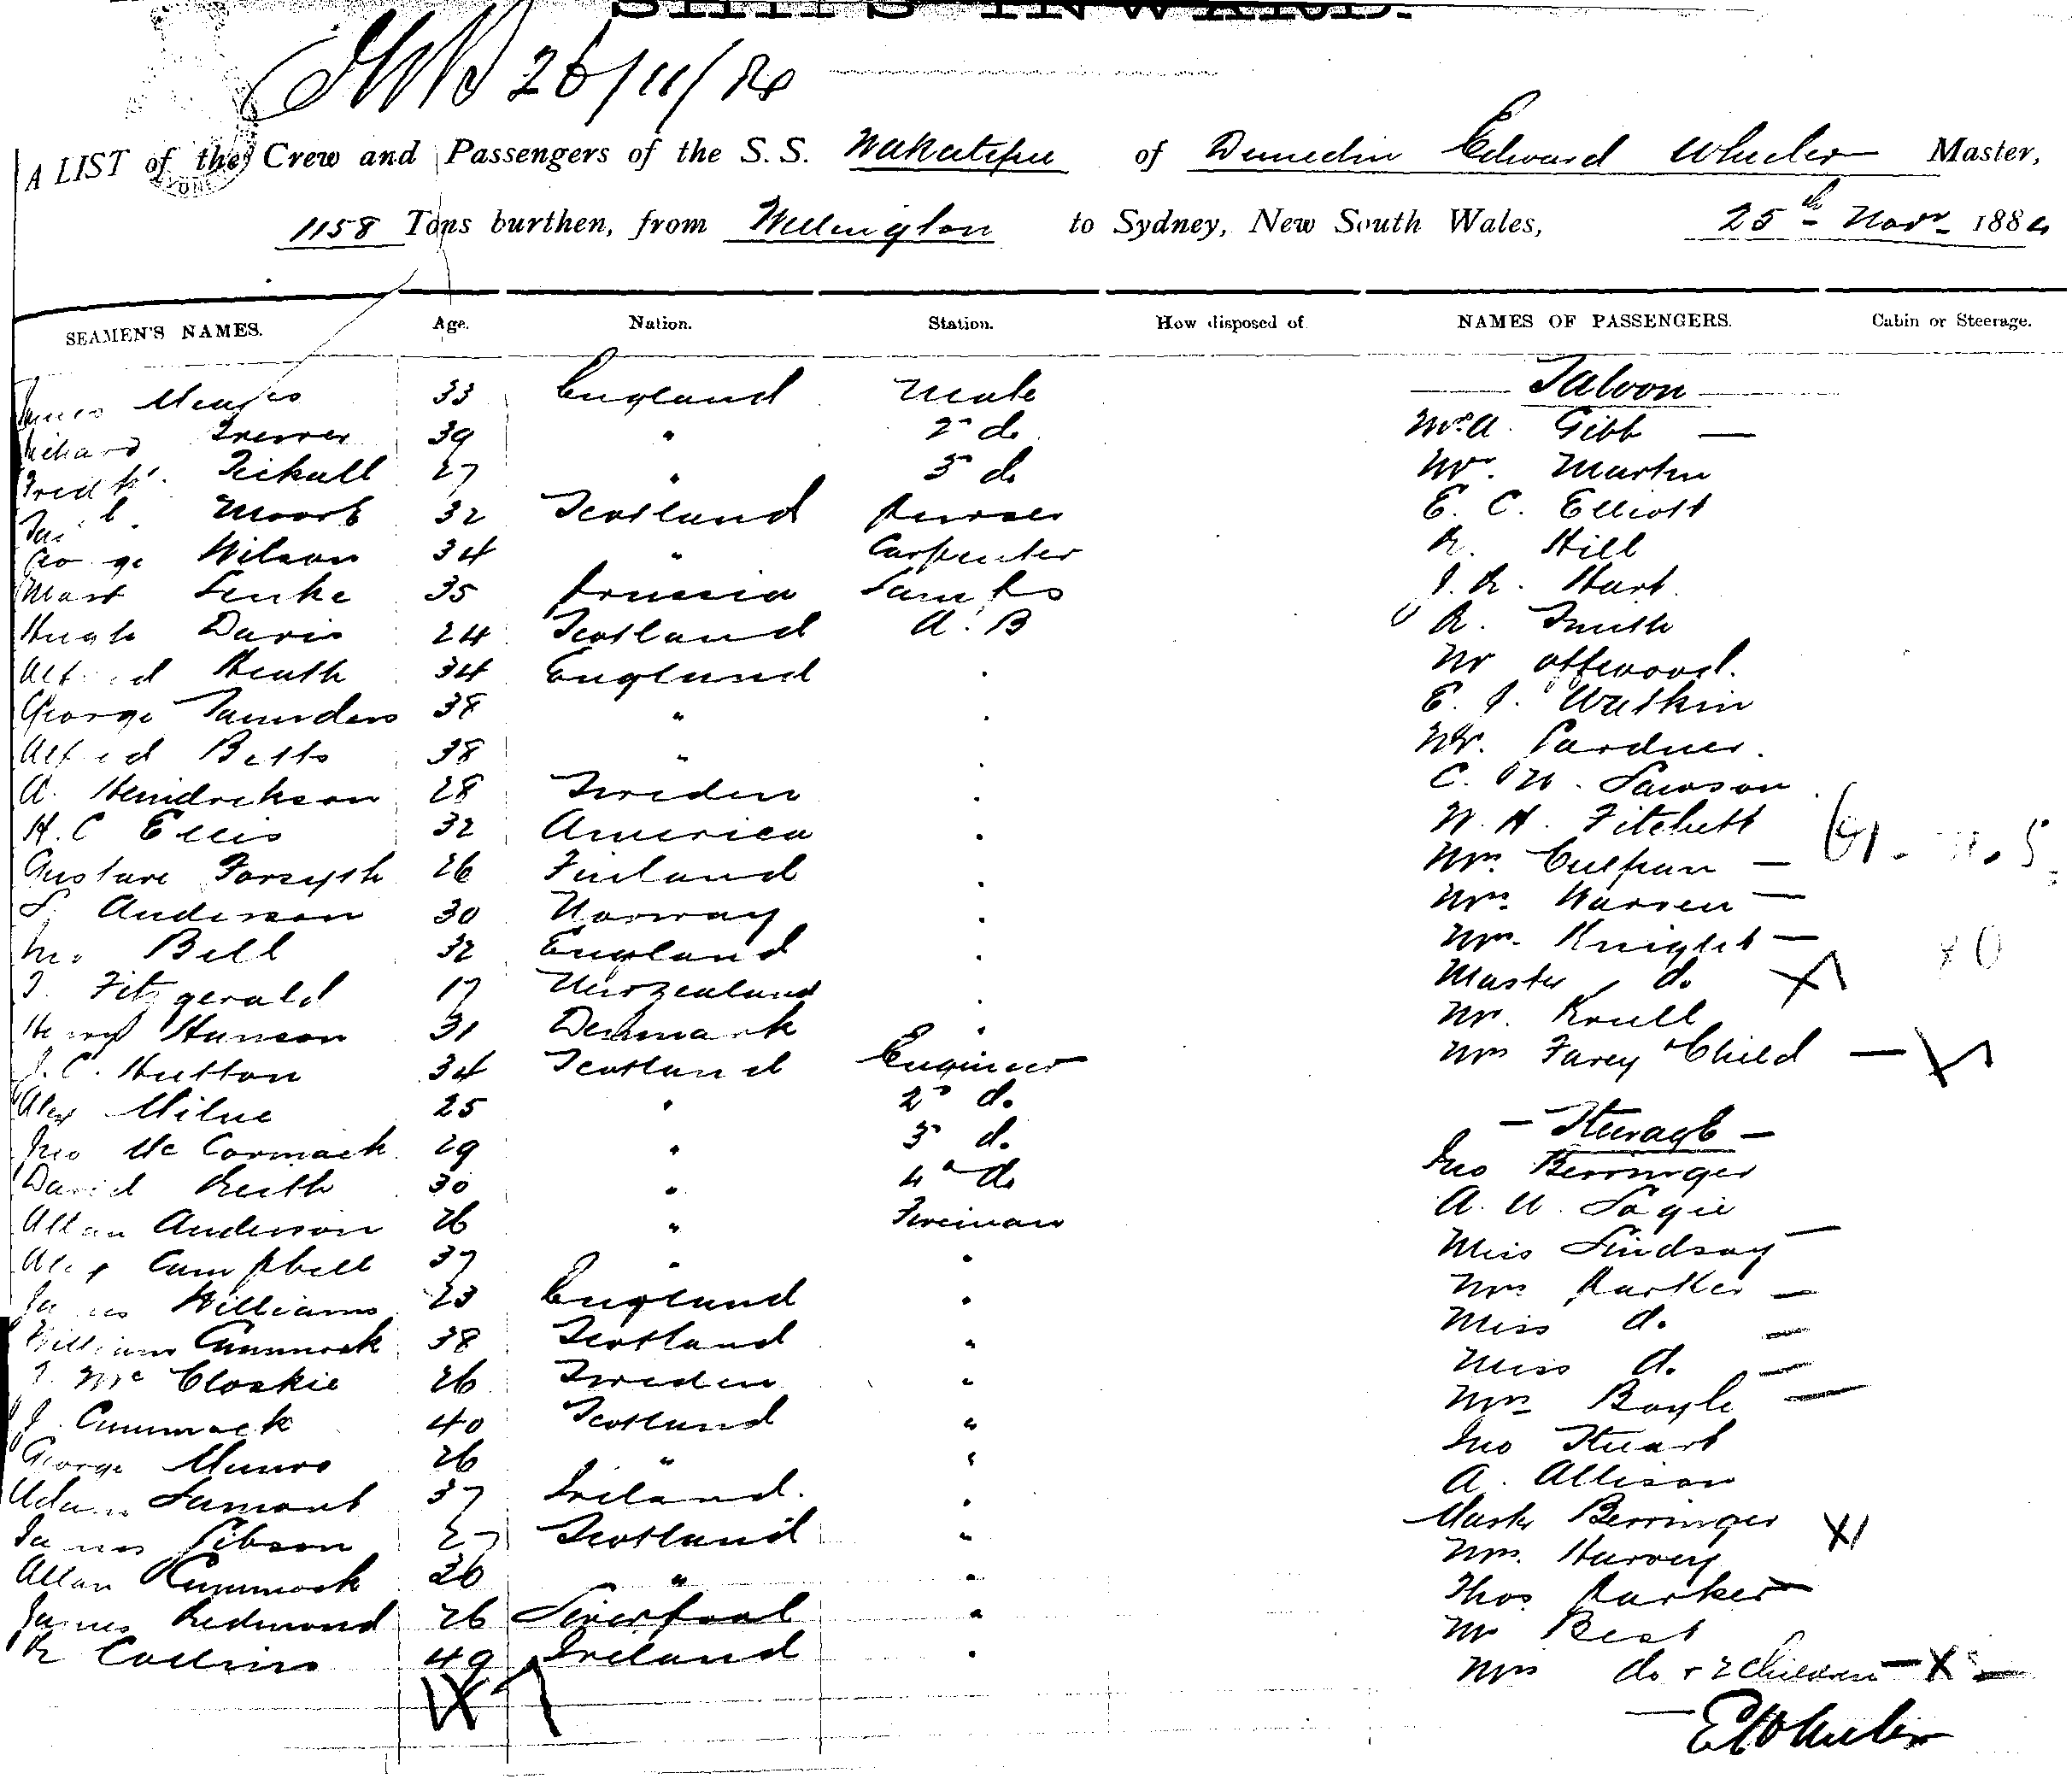 SHIPS INWARD.
26/11/84
A LIST of the Crew and Passengers of the S.S. Wakatipu of Dunedin Edward Wheeler Master,
1158 Tons burthen, from Wellington to Sydney, New South Wales, 25th Novr 1884
SEAMEN'S NAMES. Age. Nation. Station. How disposed of. NAMES OF PASSENGERS. Cabin or Steerage.
Saloon
James 33 England Mate
Richard 39 " 2d do Mrs A. Gibb —
Fredk. Tickall 27 " 3d do Mr. Martin
Moore 32 Scotland Purser E. C. Elliott
George Wilson 34 " Carpenter R. Hill
35 Prussia Lamps J. R. Hart
Hugh Davis 24 Scotland A. B R. Smith
Alfred Heath 34 England . Mr Attwood.
George Saunders 38 " . E. J. Watkin
Alfred Betts 38 " . Mr. Pardner.
A. Hendrickson 28 Sweden . C. W. Lawson
H. C Ellis 32 America . W. H. Fitchett
Gustave Forsyth 26 Finland . Mrs. Culpan —
S. Anderson 30 Norway . Mrs. Warren —
Jno Bell 32 England . Mrs. Knight —
J. Fitzgerald 17 New Zealand . Master do
Henry Hanson 31 Denmark . Mr. Krull
J. C. Hutton 34 Scotland Engineer Mrs Farey & Child —
Alex Milne 25 " 2d do
— Steerage —
Jno Mc Cormack 29 " 3d do Jno Berringer
David Keith 30 " 4th do A. W. Logie
Allan Anderson 26 " Fireman Miss Lindsay —
Alex Campbell 37 " " Mrs Parker —
James Williams 23 England " Miss do —
William Cummock 38 Scotland " Miss do —
J. Mc Closkie 26 Sweden " Mrs Boyle —
J. Cummock 40 Scotland " Jno Stuart
George Munro 26 " " A. Allison
Adam Lamont 37 Ireland. " Mastr Berringer
James Gibson 27 Scotland " Mrs. Harvey
Allan Cummock 26 " " Thos Parker
James Redmond 26 Liverpool " Mr Best
R Collins 49 Ireland " Mrs do & 2 children —
E Wheeler